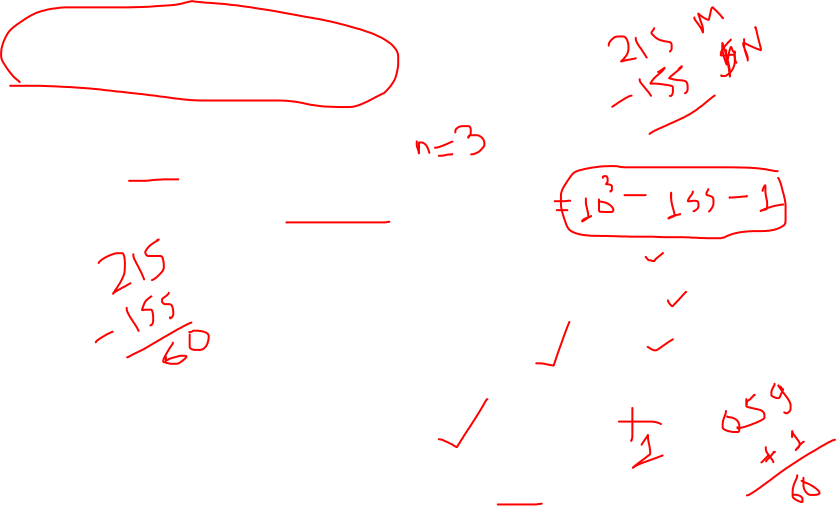 215 M
-155 N
n=3
=10³ - 155 - 1
215
-155
60
+1
059
+1
60